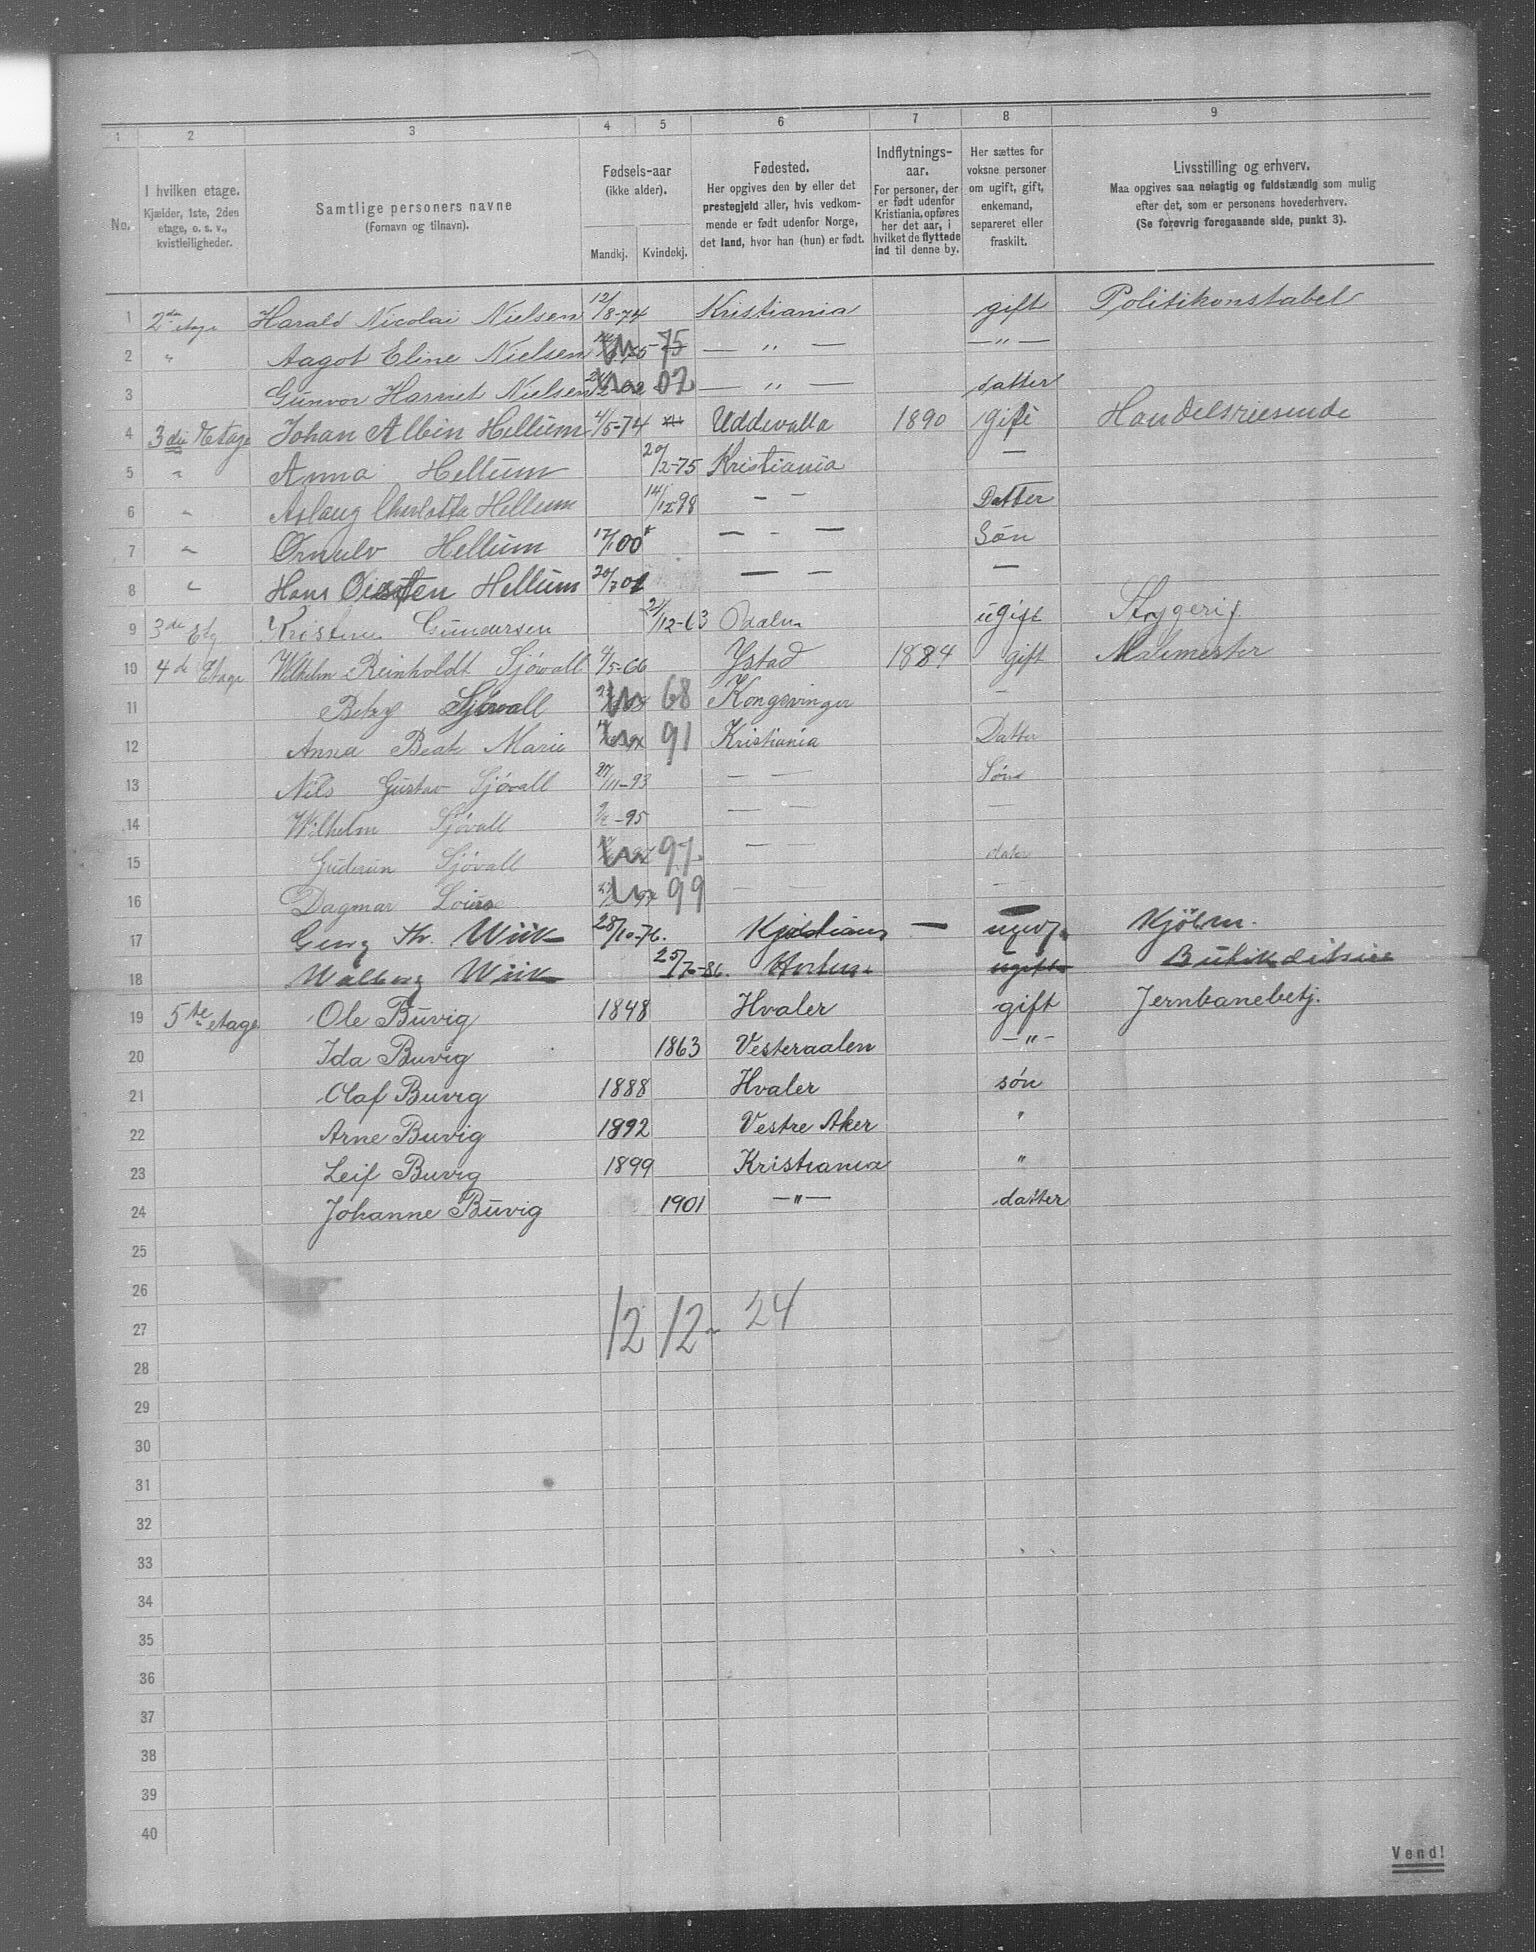 1 2 3 4 5 6 7 8 9
No.
I hvilken etage.
Kjælder, 1ste, 2den
etage, o. s. v.,
kvistleiligheder.
Samtlige personers navne
(Fornavn og tilnavn).
Fødsels-aar
(ikke alder).
Mandkj. Kvindekj.
Fødested.
Her opgives den by eller det
prestegjeld eller, hvis vedkom-
mende er født udenfor Norge,
det land, hvor han (hun) er født.
Indflytnings-
aar.
For personer, der
er født udenfor
Kristiania, opføres
her det aar, i
hvilket de flyttede
ind til denne by.
Her sættes for
voksne personer
om ugift, gift,
enkemand,
separeret eller
fraskilt.
Livsstilling og erhverv.
Maa opgives saa nøiagtig og fuldstændig som mulig
efter det, som er personens hovederhverv.
(Se forøvrig foregaaende side, punkt 3).
1 2den etage Harald Nicolai Nielsen 12/8-74 Kristiania gift Politikonstabel
2 " Aagot Eline Nielsen 75 — " — — " —
3 Gunvor Harriet Nielsen 02 — " — datter
4 3die Etage Johan Albin Hellum 4/5-74 Uddevalla 1890 gift Handelsreisende
5 " Anna Hellum 20/2-75 Kristiania —
6 " Aslaug Charlotta Hellum 14/12 98 — — Datter
7 " Ørnulv Hellum 17/1 00 — - — Søn
8 " Hans Oisten Hellum 20/7 01 — — —
9 3de Etg Kristine Gundersen 21/12-63 Odalen ugift Strygerij
10 4de Etage Wilhelm Reinholdt Sjøvall 4/5-66 Ystad 1884 gift Malemester
11 Betzy Sjøvall 68 Kongsvinger —
12 Anna Beate Marie 91 Kristiania Datter
13 Nils Gustav Sjøvall 27/11-93 — — Søn
14 Wilhelm Sjøvall -95 — — —
15 Guderun Sjøvall 97 — — dater
16 Dagmar Louise 99 — — —
17 Georg Th. Wiik 28/10-76. —
18 Walborg Wiik 25/7-86. Horten ugift
19 5te etage Ole Buvig 1848 Hvaler gift Jernbanebetj.
20 Ida Buvig 1863 Vesteraalen — " —
21 Olaf Buvig 1888 Hvaler søn
22 Arne Buvig 1892 Vestre Aker "
23 Leif Buvig 1899 Kristiania "
24 Johanne Buvig 1901 — " — datter
25
26
27 12 12 24
28
29
30
31
32
33
34
35
36
37
38
39
40
Vend!